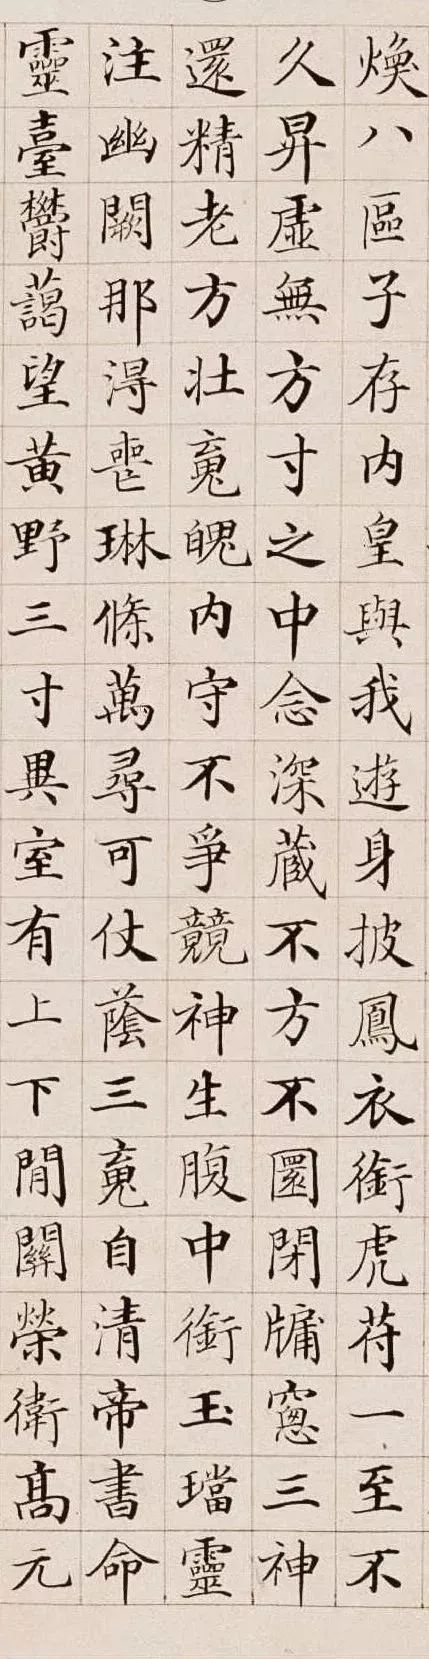 煥八區子存内皇與我遊身披鳳衣銜虎苻一至不
久昇虛無方寸之中念深蔵不方不圓閉牖窓三神
還精老方壯䰟魄内守不爭競神生腹中銜玉璫靈
注幽闕那淂喪琳條萬尋可仗蔭三䰟自清帝書命
靈臺鬱藹望黄野三寸異室有上下閒關榮衛髙元